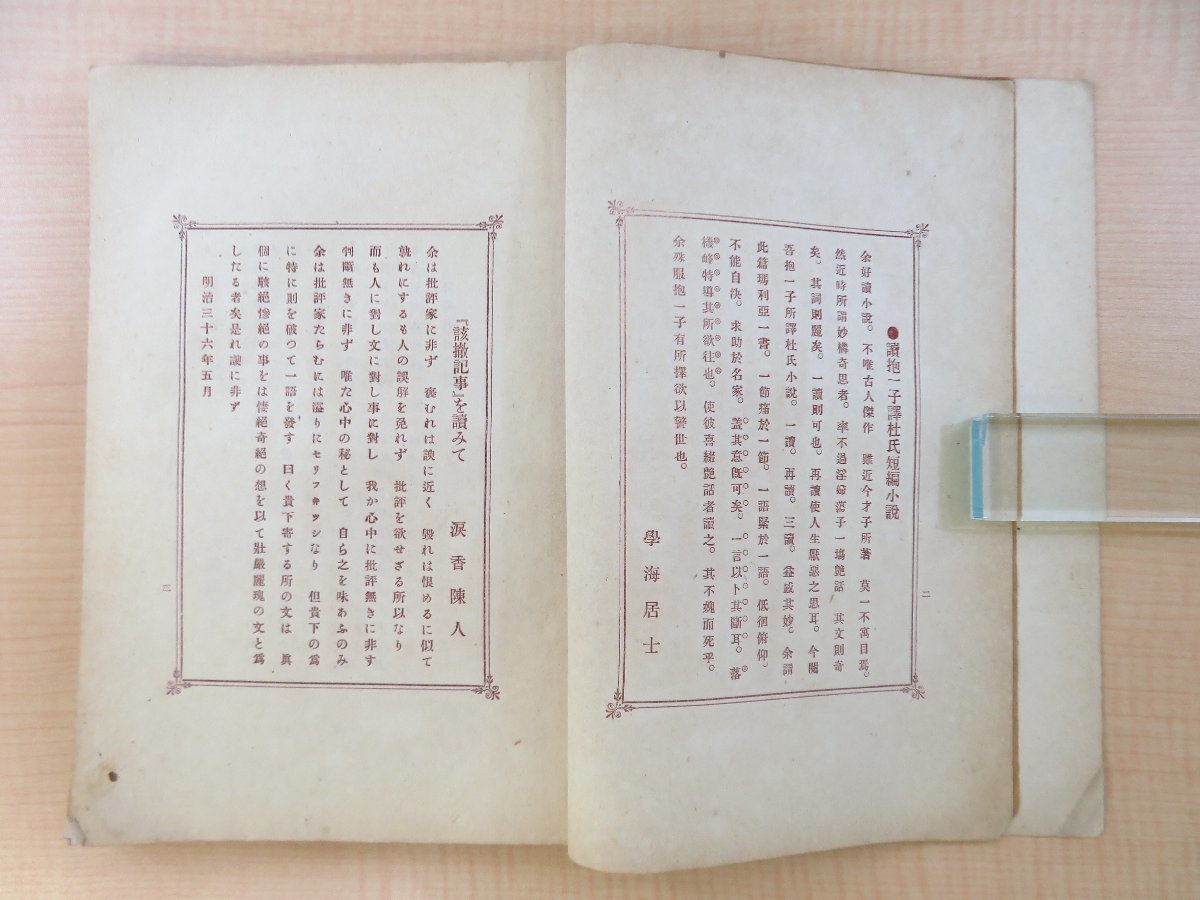 二
●讀抱一子譯杜氏短編小說
余好讀小說。不唯古人傑作 雖近今才子所著 莫一不寓目焉。
然近時所謂妙構奇思者。率不過淫婦蕩子一塲艶話 其文則奇
矣。其詞則麗矣。一讀則可也。再讀使人生厭惡之思耳。今閱
吾抱一子所譯杜氏小說。一讀。再讀。三讀。益感其妙。余謂
此篇瑪利亞一書。一節痛於一節。一語緊於一語。低徊俯仰。
不能自決。求助於名家。蓋其意旣可矣。一言以卜其斷耳。落
機峰特導其所欲往也。使彼喜緖艶話者讀之。其不魂而死乎。
余殊服抱一子有所擇欲以警世也。
學海居士
『該撤記事』を讀みて 淚香陳人
余は批評家に非ず 褒むれは諛に近く 毀れは恨めるに似て
孰れにするも人の誤解を免れず 批評を欲せざる所以なり
而も人に對し文に對し事に對し 我か心中に批評無きに非す
判斷無きに非ず 唯た心中の秘として 自ら之を味あふのみ
余は批評家たらむには溢りにセリフ井ツシなり 但貴下の爲
に特に則を破つて一語を發す 曰く貴下寄する所の文は 眞
個に駭絕慘絕の事をは悽絕奇絕の想を以て壯嚴麗瑰の文と爲
したる者矣是れ諛に非ず
明治三十六年五月
三